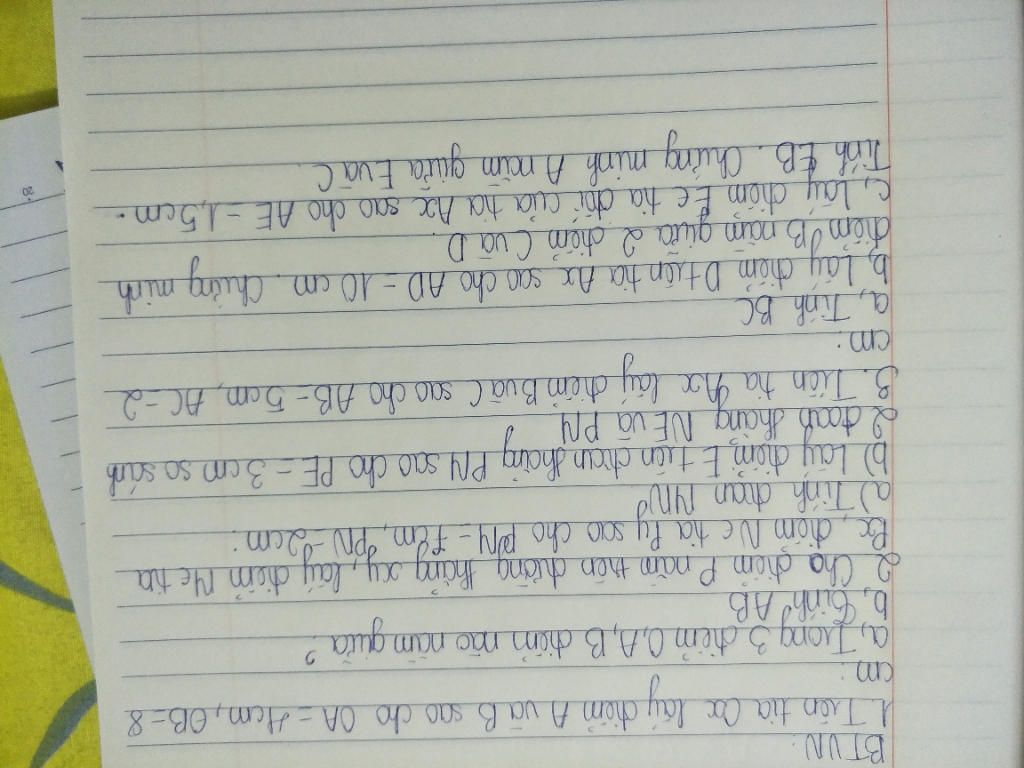 BTVN:
1. Trên tia Ox lấy điểm A và B sao cho OA = 4cm, OB = 8
cm:
a, Trong 3 điểm O, A, B điểm nào nằm giữa?
b, Tính AB
2. Cho điểm P nằm trên đường thẳng xy, lấy điểm M ∈ tia
Px, điểm N ∈ tia Py sao cho PM = 7cm, PN = 2cm:
a) Tính đoạn MN
b) Lấy điểm E trên đoạn thẳng PM sao cho PE = 3cm so sánh
2 đoạn thẳng NE và PM
3. Trên tia Ax lấy điểm B và C sao cho AB = 5cm, AC = 2
cm:
a, Tính BC
b, Lấy điểm D trên tia Ax sao cho AD = 10 cm. Chứng minh
điểm B nằm giữa 2 điểm C và D.
c, Lấy điểm E ∈ tia đối của tia Ax sao cho AE = 1,5cm.
Tính EB. Chứng minh A nằm giữa E và C.
20